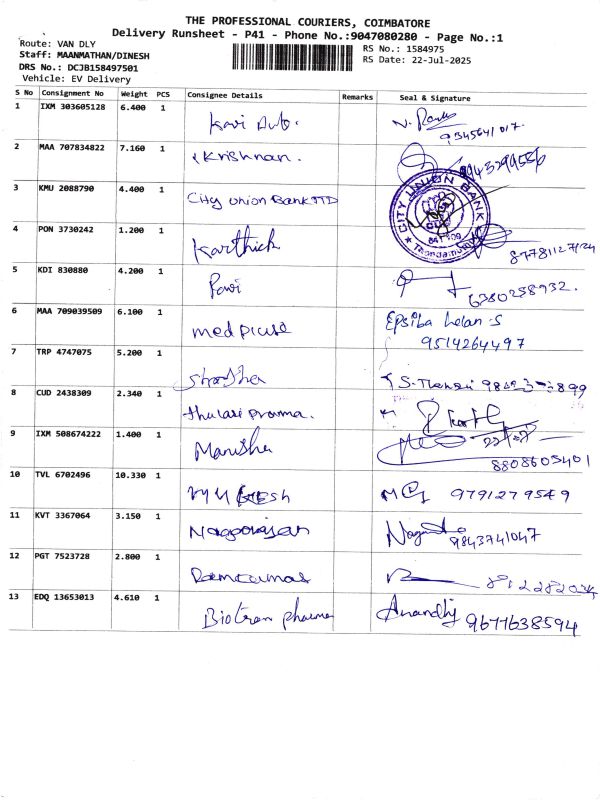 THE PROFESSIONAL COURIERS, COIMBATORE
Delivery Runsheet - P41 - Phone No.:9047080280 - Page No.:1
Route: VAN DLY
RS No.: 1584975
Staff: MAANMATHAN/DINESH
RS Date: 22-Jul-2025
DRS No.: DCJB158497501
Vehicle: EV Delivery
S No Consignment No Weight PCS Consignee Details Remarks Seal & Signature
1 IXM 303605128 6.400 1 Kavi Auto.
9345641017.
2 MAA 707834822 7.160 1 Krishnan.
3 KMU 2088790 4.400 1 City Union Bank LTD
CITY UNION BANK
641 109
4 PON 3730242 1.200 1 Karthick
8778112724
5 KDI 830880 4.200 1 Pavi
6380258932.
6 MAA 709039509 6.100 1 med pluse Epsiba helan.S
9514264497
7 TRP 4747075 5.200 1
8 CUD 2438309 2.340 1 thulasi prarma.
9 IXM 508674222 1.400 1 Manisha
8808605401
10 TVL 6702496 10.330 1 9791279549
11 KVT 3367064 3.150 1 Nagarajan
9843741047
12 PGT 7523728 2.800 1 Ramkumar
13 EDQ 13653013 4.610 1 Biotran pharma Anandhj
9677638594